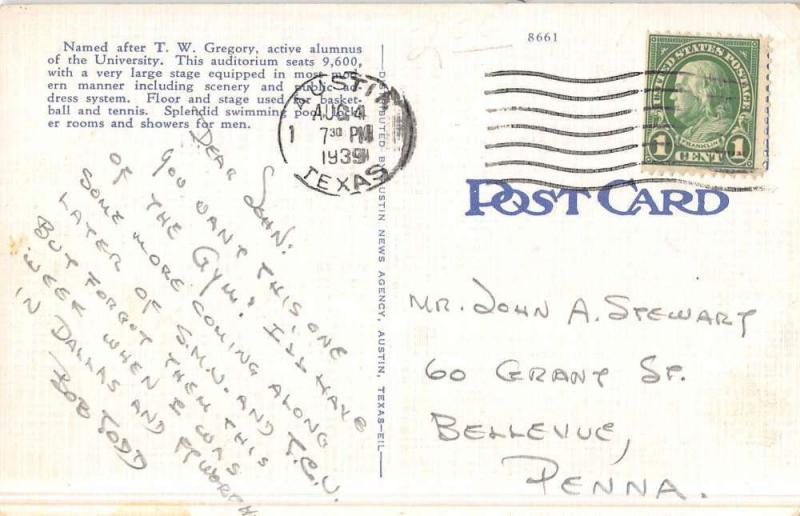 Named after T. W. Gregory, active alumnus
of the University. This auditorium seats 9,600,
with a very large stage equipped in most mod-
ern manner including scenery and public ad-
dress system. Floor and stage used for basket-
ball and tennis. Splendid swimming pool, lock-
er rooms and showers for men.
DEAR JOHN:
YOU WANT THIS ONE
OF THE GYM? I'LL HAVE
SOME MORE COMING ALONG
LATER OF S.M.U. AND T.C.U.
BUT FORGOT THEM THIS
WEEK WHEN I WAS
IN DALLAS AND FT WORTH
BOB TODD
DISTRIBUTED BY AUSTIN NEWS AGENCY, AUSTIN, TEXAS—EIL
8661
AUSTIN
AUG 4
1 7 30 PM
1939
TEXAS
UNITED STATES POSTAGE
FRANKLIN
1 CENT 1
POST CARD
MR. JOHN A. STEWART
60 GRANT ST.
BELLEVUE,
PENNA.